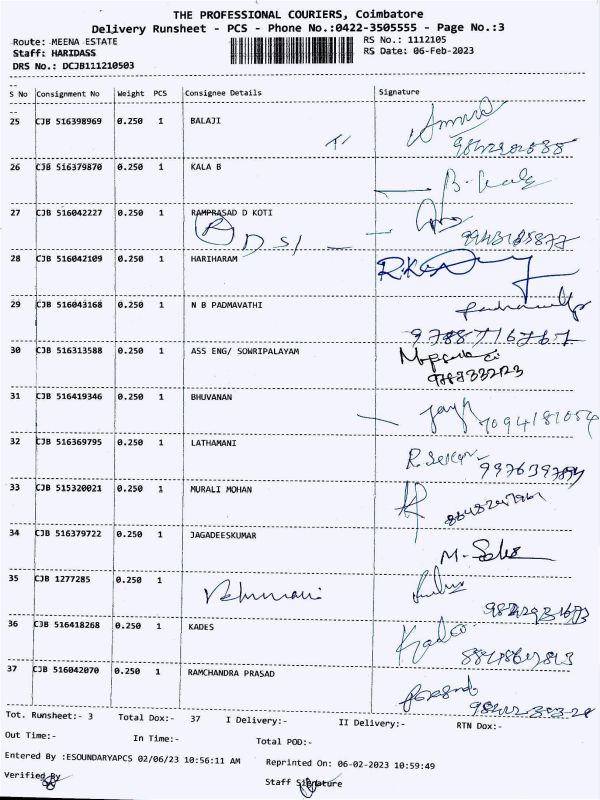 THE PROFESSIONAL COURIERS, Coimbatore
Delivery Runsheet - PCS - Phone No.:0422-3505555 - Page No.:3
Route: MEENA ESTATE RS No.: 1112105
Staff: HARIDASS RS Date: 06-Feb-2023
DRS No.: DCJB111210503
S No Consignment No Weight PCS Consignee Details Signature
25 CJB 516398969 0.250 1 BALAJI
26 CJB 516379870 0.250 1 KALA B
27 CJB 516042227 0.250 1 RAMPRASAD D KOTI
28 CJB 516042109 0.250 1 HARIHARAM
29 CJB 516043168 0.250 1 N B PADMAVATHI
30 CJB 516313588 0.250 1 ASS ENG/ SOWRIPALAYAM
9787332123
31 CJB 516419346 0.250 1 BHUVANAN
7094181054
32 CJB 516369795 0.250 1 LATHAMANI
R. Sekar
33 CJB 515320021 0.250 1 MURALI MOHAN
34 CJB 516379722 0.250 1 JAGADEESKUMAR
35 CJB 1277285 0.250 1
36 CJB 516418268 0.250 1 KADES
37 CJB 516042070 0.250 1 RAMCHANDRA PRASAD
Tot. Runsheet:- 3 Total Dox:- 37 I Delivery:- II Delivery:- RTN Dox:-
Out Time:- In Time:- Total POD:-
Entered By :ESOUNDARYAPCS 02/06/23 10:56:11 AM Reprinted On: 06-02-2023 10:59:49
Verified By Staff Signature